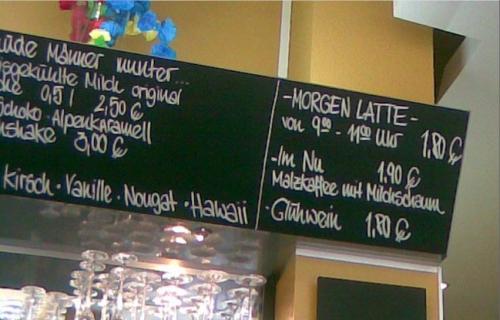 üde Männer munter...
isgekühlte Milch original
0,5 l 2,50 €
Schoko · Alpenkaramell
shake 3,00 €
Kirsch · Vanille · Nougat · Hawaii
- MORGEN LATTE -
von 9⁰⁰ - 11⁰⁰ Uhr 1,80 €
- Im Nu 1,90 €
Malzkaffee mit Milchschaum
- Glühwein 1,80 €